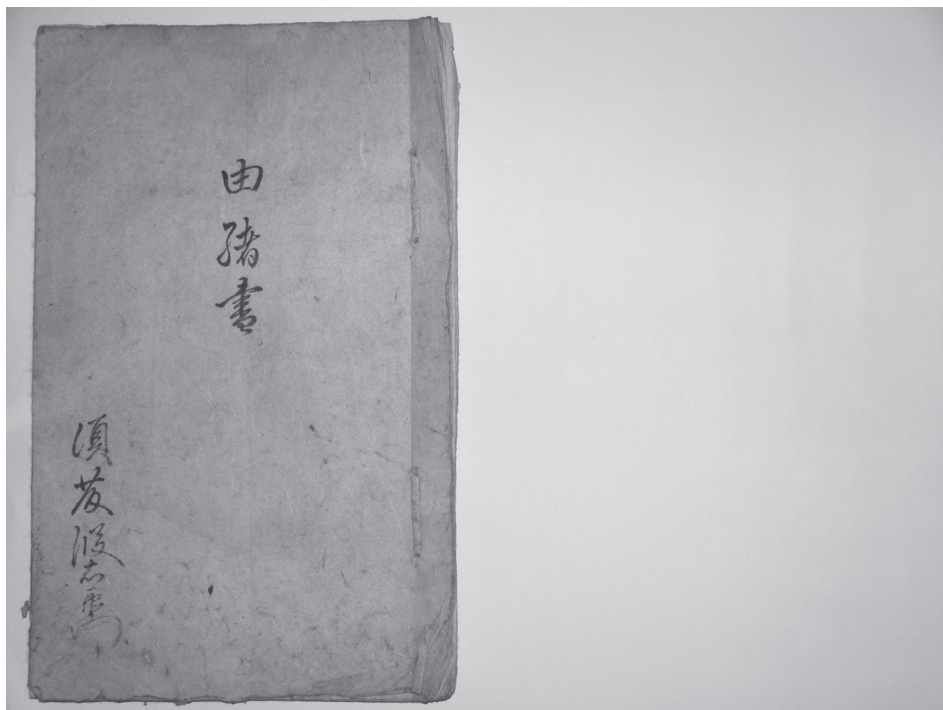 由緒書
須藤波右衛門